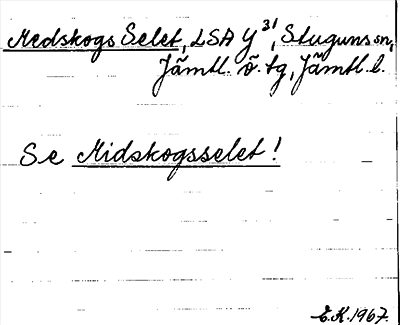 Medskogs Selet, LSA Y 31, Stuguns sn,
Jämtl. ö. tg, Jämtl. l.
Se Midskogsselet!
E.K. 1967.